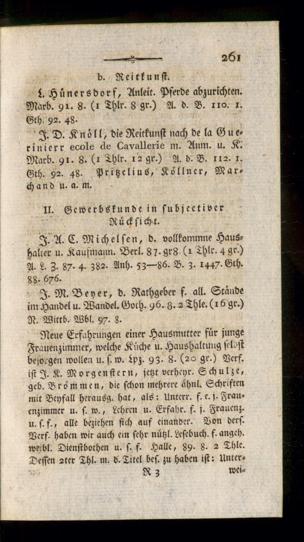 261
b. Reitkunst.
L. Hünersdorf, Anleit. Pferde abzurichten.
Marb. 91. 8. (1 Thlr. 8 gr.) A. d. B. 110. 1.
Gth. 92. 48.
J. D. Knöll, die Reitkunst nach de la Gue-
rinierr ecole de Cavallerie m. Anm. u. K.
Marb. 91. 8. (1 Thlr. 12 gr.) A. d. B. 112. 1.
Gth. 92. 48. Pritzelius, Köllner, Mar-
chand u. a. m.
II. Gewerbskunde in subjectiver
Rücksicht.
J. A. C. Michelsen, d. vollkommne Haus-
halter u. Kaufmann. Berl. 87. gr8 (1 Thlr. 4 gr.)
A. L. Z. 87. 4. 382. Anh. 53—86. B. 3. 1447. Gth.
88. 676.
J. M. Beyer, d. Rathgeber f. all. Stände
im Handel u. Wandel. Goth. 96. 8. 2 Thle. (16 gr.)
N. Wittb. Wbl. 97. 8.
Neue Erfahrungen einer Hausmutter für junge
Frauenzimmer, welche Küche u. Haushaltung selbst
besorgen wollen u. s. w. Lpz. 93. 8. (20 gr.) Verf.
ist J. K. Morgenstern, jetzt verheyr. Schulze,
geb. Brömmen, die schon mehrere ähnl. Schriften
mit Beyfall herausg. hat, als: Unterr. f. e. j. Frau-
enzimmer u. s. w., Lehren u. Erfahr. f. j. Frauenz.
u. s. f., alle beziehen sich auf einander. Von ders.
Verf. haben wir auch ein sehr nützl. Lesebuch f. angeh.
weibl. Dienstbothen u. s. f. Halle, 89. 8. 2 Thle.
Dessen 2ter Thl. m. d. Titel bes. zu haben ist: Unter-
R 3 wei-